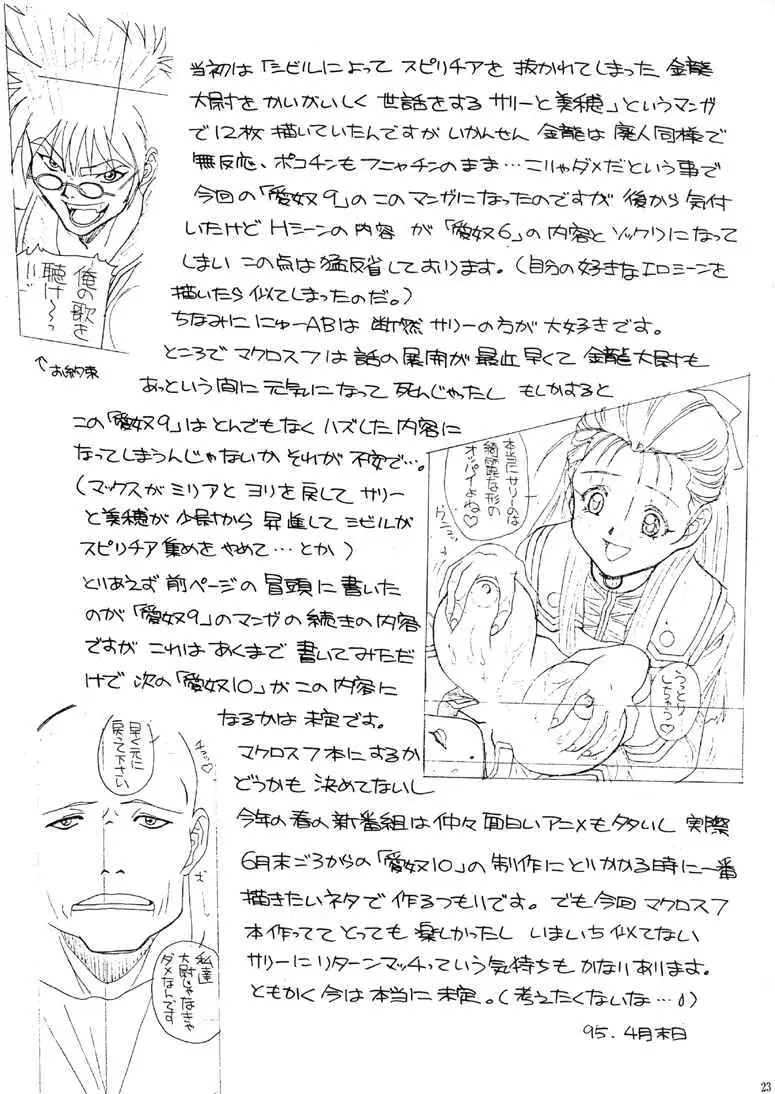 当初は「シビルによって スピリチアを 抜かれてしまった 金龍
大尉を かいがいしく 世話をする サリーと美穂」というマンガ
で12枚 描いていたんですが いかんせん 金龍は 廃人同様で
無反応、ポコチンも フニャチンのまま…こりゃダメだという事で
今回の「愛奴9」のこのマンガになったのですが 後から気付
いたけど Hシーンの内容 が「愛奴6」の内容と ソックリになって
しまい この点は猛反省しております。(自分の好きなエロシーンを
描いたら 似てしまったのだ。)
ちなみに にゅーABは 断然 サリーの方が 大好きです。
ところで マクロス7は 話の展開が 最近 早くて 金龍大尉も
あっという間に 元気になって 死んじゃったし もしかすると
この「愛奴9」は とんでもなく ハズした内容に
なってしまうんじゃないか それが 不安で…。
(マックスが ミリアと ヨリを戻して サリー
と美穂が 少尉から 昇進して シビルが
スピリチア 集めを やめて…とか)
とりあえず 前ページの 冒頭に 書いた
のが「愛奴9」のマンガの続きの内容
ですが これは あくまで 書いてみただ
けで 次の「愛奴10」が この内容に
なるかは 未定です。
マクロス7本にするか
どうかも 決めてないし
今年の春の新番組は 仲々 面白いアニメも 多いし 実際
6月末ごろからの「愛奴10」の制作にとりかかる時に一番
描きたいネタで 作るつもりです。でも今回 マクロス7
本作ってて とっても 楽しかったし いまいち 似てない
サリーに リターンマッチっていう気持ちも かなりあります。
ともかく 今は 本当に 未定。(考えたくないな…)
95.4月末日
俺の歌を
聴け〜〜っ
!!
↑お約束
本当にサリーのは
綺麗な形の
オッパイよね♡
早く元に
戻って下さい
私達
大尉じゃなきゃ
ダメなんです
23